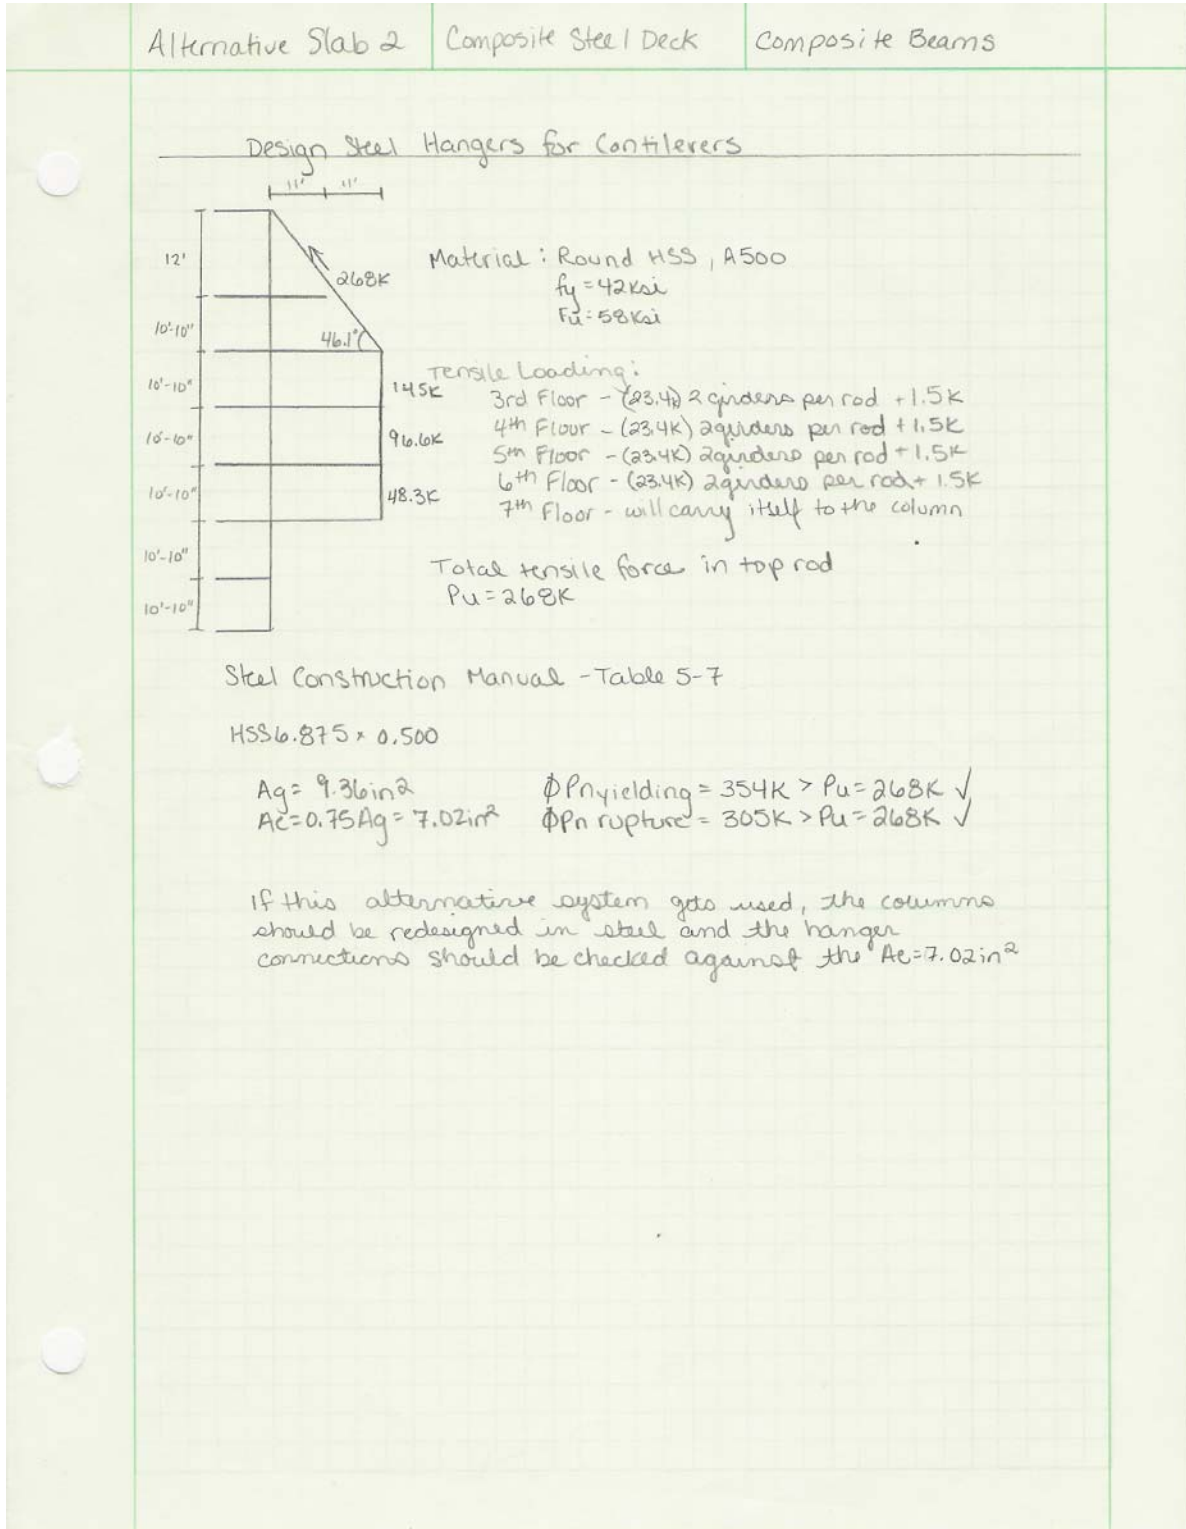 Alternative Slab 2
Composite Steel Deck
Composite Beams
Design Steel Hangers for Cantilevers
11' 11'
12'
268K
10'-10"
46.1°
10'-10"
145K
10'-10"
96.6K
10'-10"
48.3K
10'-10"
10'-10"
Material: Round HSS, A500
fy=42Ksi
Fu=58Ksi
Tensile Loading:
3rd Floor - (23.4k) 2 girders per rod +1.5K
4th Floor - (23.4K) 2 girders per rod +1.5K
5th Floor - (23.4K) 2 girders per rod +1.5K
6th Floor - (23.4K) 2 girders per rod + 1.5K
7th Floor - will carry itself to the column
Total tensile force in top rod
Pu=268K
Steel Construction Manual - Table 5-7
HSS6.875 x 0.500
Ag= 9.36in2 ϕPnyielding = 354K > Pu=268K ✓
Ae=0.75Ag= 7.02in2 ϕPn rupture = 305K > Pu=268K ✓
If this alternative system gets used, the columns
should be redesigned in steel and the hanger
connections should be checked against the Ae=7.02in2